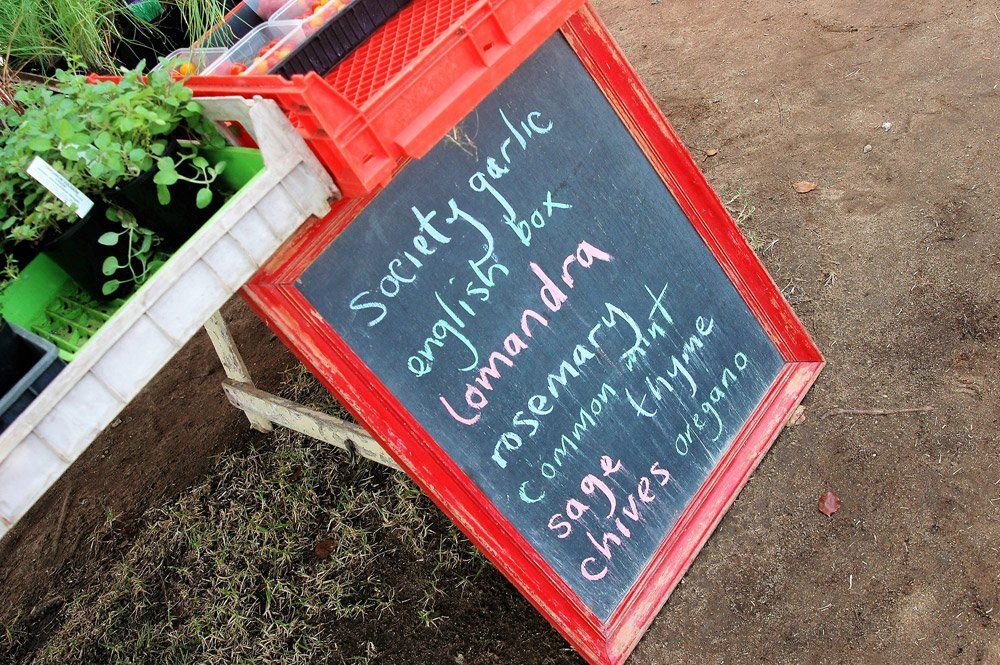 society garlic
english box
lomandra
rosemary
common mint
thyme
sage
oregano
chives